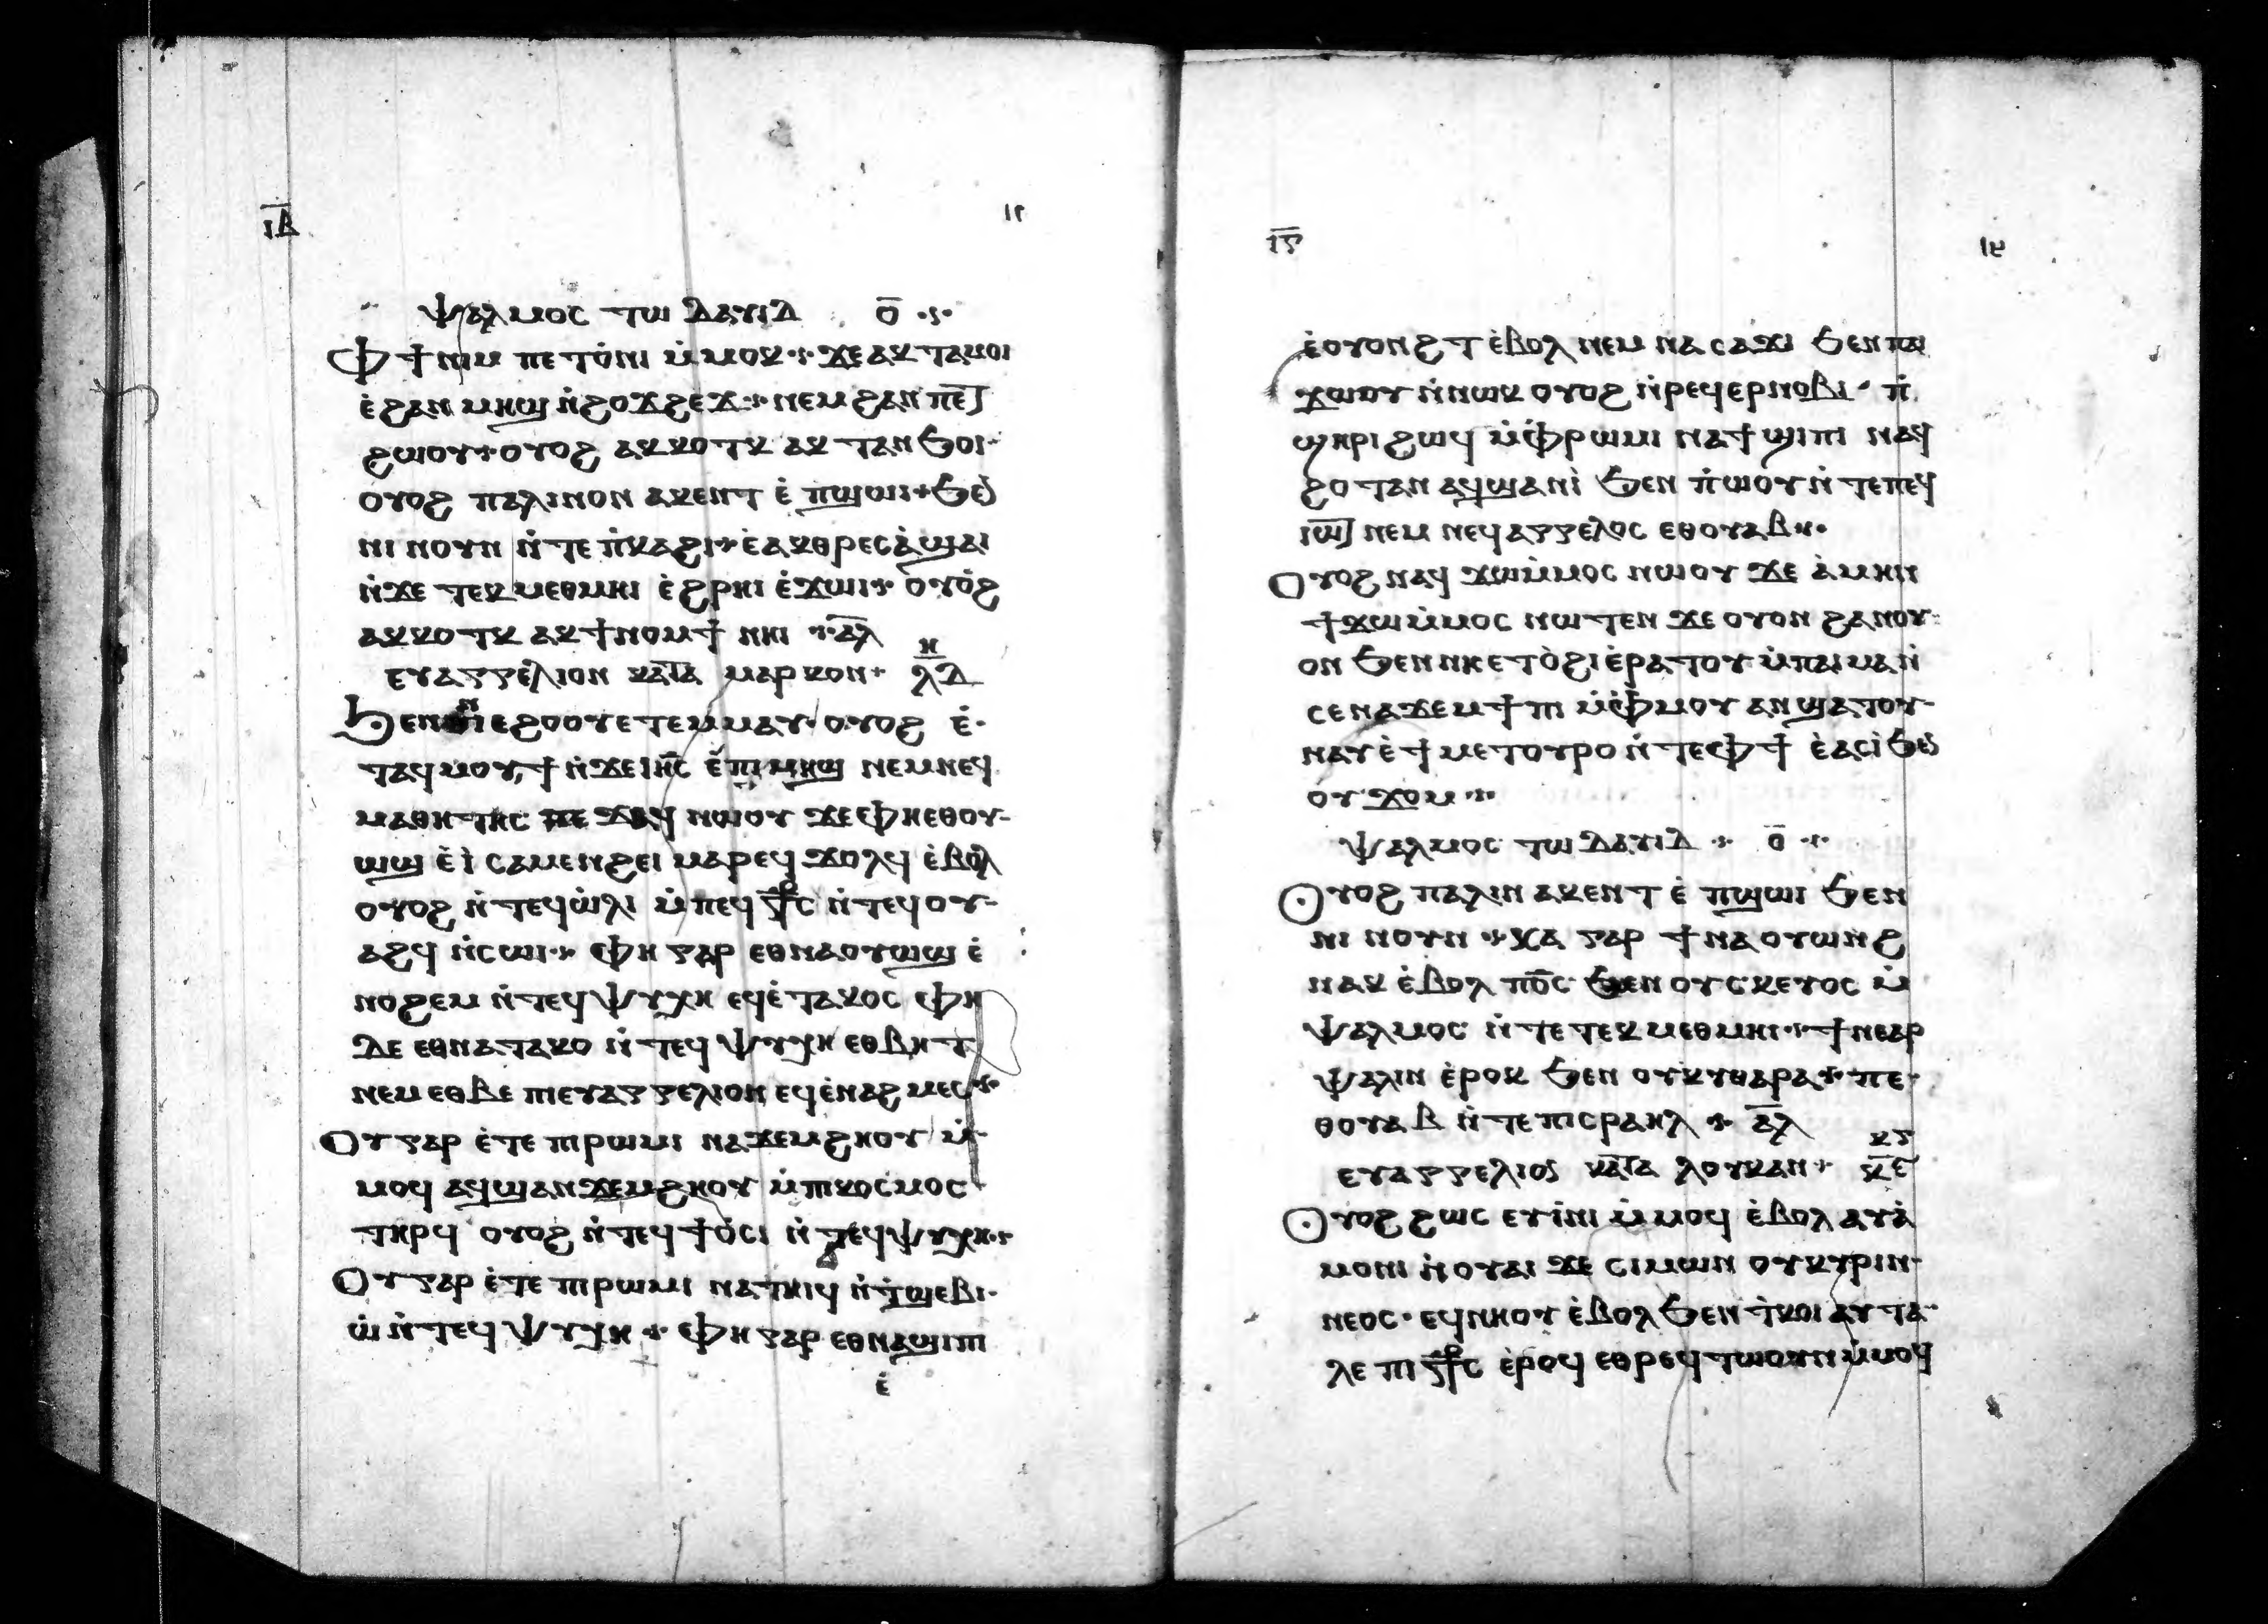 ⲓⲃ̅
ⲯⲁⲗⲙⲟⲥ ⲧⲱ ⲇⲁⲩⲓⲇ ⲟ̅
ⲫϯ ⲛⲓⲙ ⲡⲉⲧⲟ̀ⲛⲓ ⲙ̀ⲙⲟⲕ ϫⲉ ⲁⲕⲧⲁⲙⲟⲓ
ⲉ̀ϩⲁⲛ ⲙⲏϣ ⲛ̀ϩⲟϫϩⲉϫ ⲛⲉⲙ ϩⲁⲛ ⲡⲉⲧ
ϩⲱⲟⲩ ⲟⲩⲟϩ ⲁⲕⲕⲟⲧⲕ ⲁⲕ ⲧⲁⲛϧⲟⲓ
ⲟⲩⲟϩ ⲡⲁⲗⲓⲛⲟⲛ ⲁⲕⲉⲛⲧ ⲉ̀ ⲡϣⲱⲓ ϧⲉⲛ
ⲛⲓ ⲛⲟⲩⲛ ⲛ̀ⲧⲉ ⲡ̀ⲕⲁϩⲓ ⲉⲁⲕⲑⲣⲉⲥⲁ̀ϣⲁⲓ
ⲛ̀ϫⲉ ⲧⲉⲕⲙⲉⲑⲙⲏⲓ ⲉ̀ϩⲣⲏⲓ ⲉ̀ϫⲱⲓ ⲟⲩⲟ̀ϩ
ⲁⲕⲕⲟⲧⲕ ⲁⲕϯⲛⲟⲙϯ ⲛⲏⲓ ⲁ̅ⲗ̅
ⲉⲩⲁⲅⲅⲉⲗⲓⲟⲛ ⲕⲁⲧⲁ ⲙⲁⲣⲕⲟⲛ ⲏ ⲗ̅ⲇ̅
ϧⲉⲛ ⲛⲓⲉϩⲟⲟⲩ ⲉⲧⲉⲙⲙⲁⲩ ⲟⲩⲟϩ ⲉ̀
ⲧⲁϥⲙⲟⲩϯ ⲛ̀ϫⲉ ⲓⲏ̅ⲥ ⲉ̀ⲡⲓⲙⲏϣ ⲛⲉⲙ ⲛⲉϥ
ⲙⲁⲑⲏⲧⲏⲥ ⲡⲉϫⲁϥ ⲛⲱⲟⲩ ϫⲉ ⲫⲏⲉⲑⲟⲩ
ⲱϣ ⲉ̀ⲓ̀ ⲥⲁⲙⲉⲛϩⲉⲓ ⲙⲁⲣⲉϥ ϫⲟⲗϥ ⲉ̀ⲃⲟⲗ
ⲟⲩⲟϩ ⲛ̀ⲧⲉϥⲱ̀ⲗⲓ ⲙ̀ⲡⲉϥ ⲥ⳨ⲥ ⲛ̀ⲧⲉϥⲟⲩ
ⲁϩϥ ⲛ̀ⲥⲱⲓ ⲫⲏ ⲅⲁⲣ ⲉⲑⲛⲁⲟⲩⲱϣ ⲉ̀
ⲛⲟϩⲉⲙ ⲛ̀ⲧⲉϥⲯⲩⲭⲏ ⲉϥⲉ̀ⲧⲁⲕⲟⲥ ⲫⲏ
ⲇⲉ ⲉⲑⲛⲁⲧⲁⲕⲟ ⲛ̀ⲧⲉϥ ⲯⲩⲭⲏ ⲉⲑⲃⲏⲧ
ⲛⲉⲙ ⲉⲑⲃⲉ ⲡⲓⲉⲩⲁⲅⲅⲉⲗⲓⲟⲛ ⲉϥⲉ̀ⲛⲁϩⲙⲉⲥ
ⲟⲩ ⲅⲁⲣ ⲉ̀ⲧⲉ ⲡⲓⲣⲱⲙⲓ ⲛⲁϫⲉⲙϩⲏⲟⲩ ⲙ̀
ⲙⲟϥ ⲁϥϣⲁⲛϫⲉⲙϩⲏⲟⲩ ⲙ̀ⲡⲓⲕⲟⲥⲙⲟⲥ
ⲧⲏⲣϥ ⲟⲩⲟϩ ⲛ̀ⲧⲉϥϯⲟ̀ⲥⲓ ⲛ̀ⲧⲉϥⲯⲩⲭⲏ
ⲟⲩ ⲅⲁⲣ ⲉ̀ⲧⲉ ⲡⲓⲣⲱⲙⲓ ⲛⲁⲧⲏⲓϥ ⲛ̀ⲧ̀ϣⲉⲃⲓ
ⲱ̀ ⲛ̀ⲧⲉϥ ⲯⲩⲭⲏ ⲫⲏ ⲅⲁⲣ ⲉⲑⲛⲁϣⲓⲡⲓ
ⲉ̀
ⲓⲋ̅
ⲉ̀ⲟⲩⲟⲛϩⲧ ⲉ̀ⲃⲟⲗ ⲛⲉⲙ ⲛⲁ ⲥⲁϫⲓ ϧⲉⲛ ⲡⲁⲓ
ϫⲱⲟⲩ ⲛ̀ⲛⲱⲓⲕ ⲟⲩⲟϩ ⲛ̀ⲣⲉϥⲉⲣⲛⲟⲃⲓ ⲡ̀
ϣⲏⲣⲓ ϩⲱϥ ⲙ̀ⲫ̀ⲣⲱⲙⲓ ⲛⲁϯϣⲓⲡⲓ ⲛⲁϥ
ϩⲟⲧⲁⲛ ⲁϥϣⲁⲛⲓ̀ ϧⲉⲛ ⲡ̀ⲱⲟⲩ ⲛ̀ⲧⲉⲡⲉϥ
ⲓⲱⲧ ⲛⲉⲙ ⲛⲉϥⲁⲅⲅⲉⲗⲟⲥ ⲉⲑⲟⲩⲁⲃ
ⲟⲩⲟϩ ⲛⲁϥ ϫⲱⲙ̀ⲙⲟⲥ ⲛⲱⲟⲩ ϫⲉ ⲁ̀ⲙⲏⲛ
ϯϫⲱⲙ̀ⲙⲟⲥ ⲛⲱⲧⲉⲛ ϫⲉ ⲟⲩⲟⲛ ϩⲁⲛⲟⲩ
ⲟⲛ ϧⲉⲛ ⲛⲏⲉⲧⲟ̀ϩⲓ ⲉ̀ⲣⲁⲧⲟⲩ ⲙ̀ⲡⲁⲓⲙⲁ ⲛ̀
ⲥⲉⲛⲁϫⲉⲙϯⲡⲓ ⲙ̀ⲫ̀ⲙⲟⲩ ⲁⲛ ϣⲁⲧⲟⲩ
ⲛⲁⲩ ⲉ̀ϯⲙⲉⲧⲟⲩⲣⲟ ⲛ̀ⲧⲉⲫϯ ⲉ̀ⲁⲥⲓ̀ ϧⲉⲛ
ⲟⲩ ϫⲟⲙ
ⲯⲁⲗⲙⲟⲥ ⲧⲱ ⲇⲁⲩⲓⲇ ⲟ̅
ⲟⲩⲟϩ ⲡⲁⲗⲓⲛ ⲁⲕⲉⲛⲧ ⲉ̀ ⲡϣⲱⲓ ϧⲉⲛ
ⲛⲓ ⲛⲟⲩⲛ ⲭⲁ ⲅⲁⲣ ϯⲛⲁⲟⲩⲱⲛϩ
ⲛⲁⲕ ⲉ̀ⲃⲟⲗ ⲡⲟ̅ⲥ ϧⲉⲛ ⲟⲩⲥⲕⲉⲩⲟⲥ ⲙ̀
ⲯⲁⲗⲙⲟⲥ ⲛ̀ⲧⲉ ⲧⲉⲕⲙⲉⲑⲙⲏⲓ ϯⲛⲉⲁⲣ
ⲯⲁⲗⲓⲛ ⲉ̀ⲣⲟⲕ ϧⲉⲛ ⲟⲩⲕⲩⲑⲁⲣⲁ ⲡⲉ
ⲑⲟⲩⲁⲃ ⲛ̀ⲧⲉ ⲡⲓⲥⲣⲁⲏⲗ ⲁ̅ⲗ̅
ⲉⲩⲁⲅⲅⲉⲗⲓⲟⲥ ⲕⲁⲧⲁ ⲗⲟⲩⲕⲁⲛ ⲕⲋ ⲕ̅ⲉ̅
ⲟⲩⲟϩ ϩⲱⲥ ⲉⲩⲓ̀ⲛⲓ ⲙ̀ⲙⲟϥ ⲉ̀ⲃⲟⲗ ⲁⲩⲁ̀
ⲙⲟⲛⲓ ⲛ̀ⲟⲩⲁⲓ ϫⲉ ⲥⲓⲙⲱⲛ ⲟⲩⲕⲩⲣⲓⲛ
ⲛⲉⲟⲥ ⲉϥⲛⲏⲟⲩ ⲉ̀ⲃⲟⲗ ϧⲉⲛ ⲧ̀ⲕⲟⲓ ⲁⲩⲧⲁ
ⲗⲉ ⲡⲓ ⲥ⳨ⲥ ⲉ̀ⲣⲟϥ ⲉⲑⲣⲉϥⲧⲱⲟⲩⲛ ⲙ̀ⲙⲟϥ